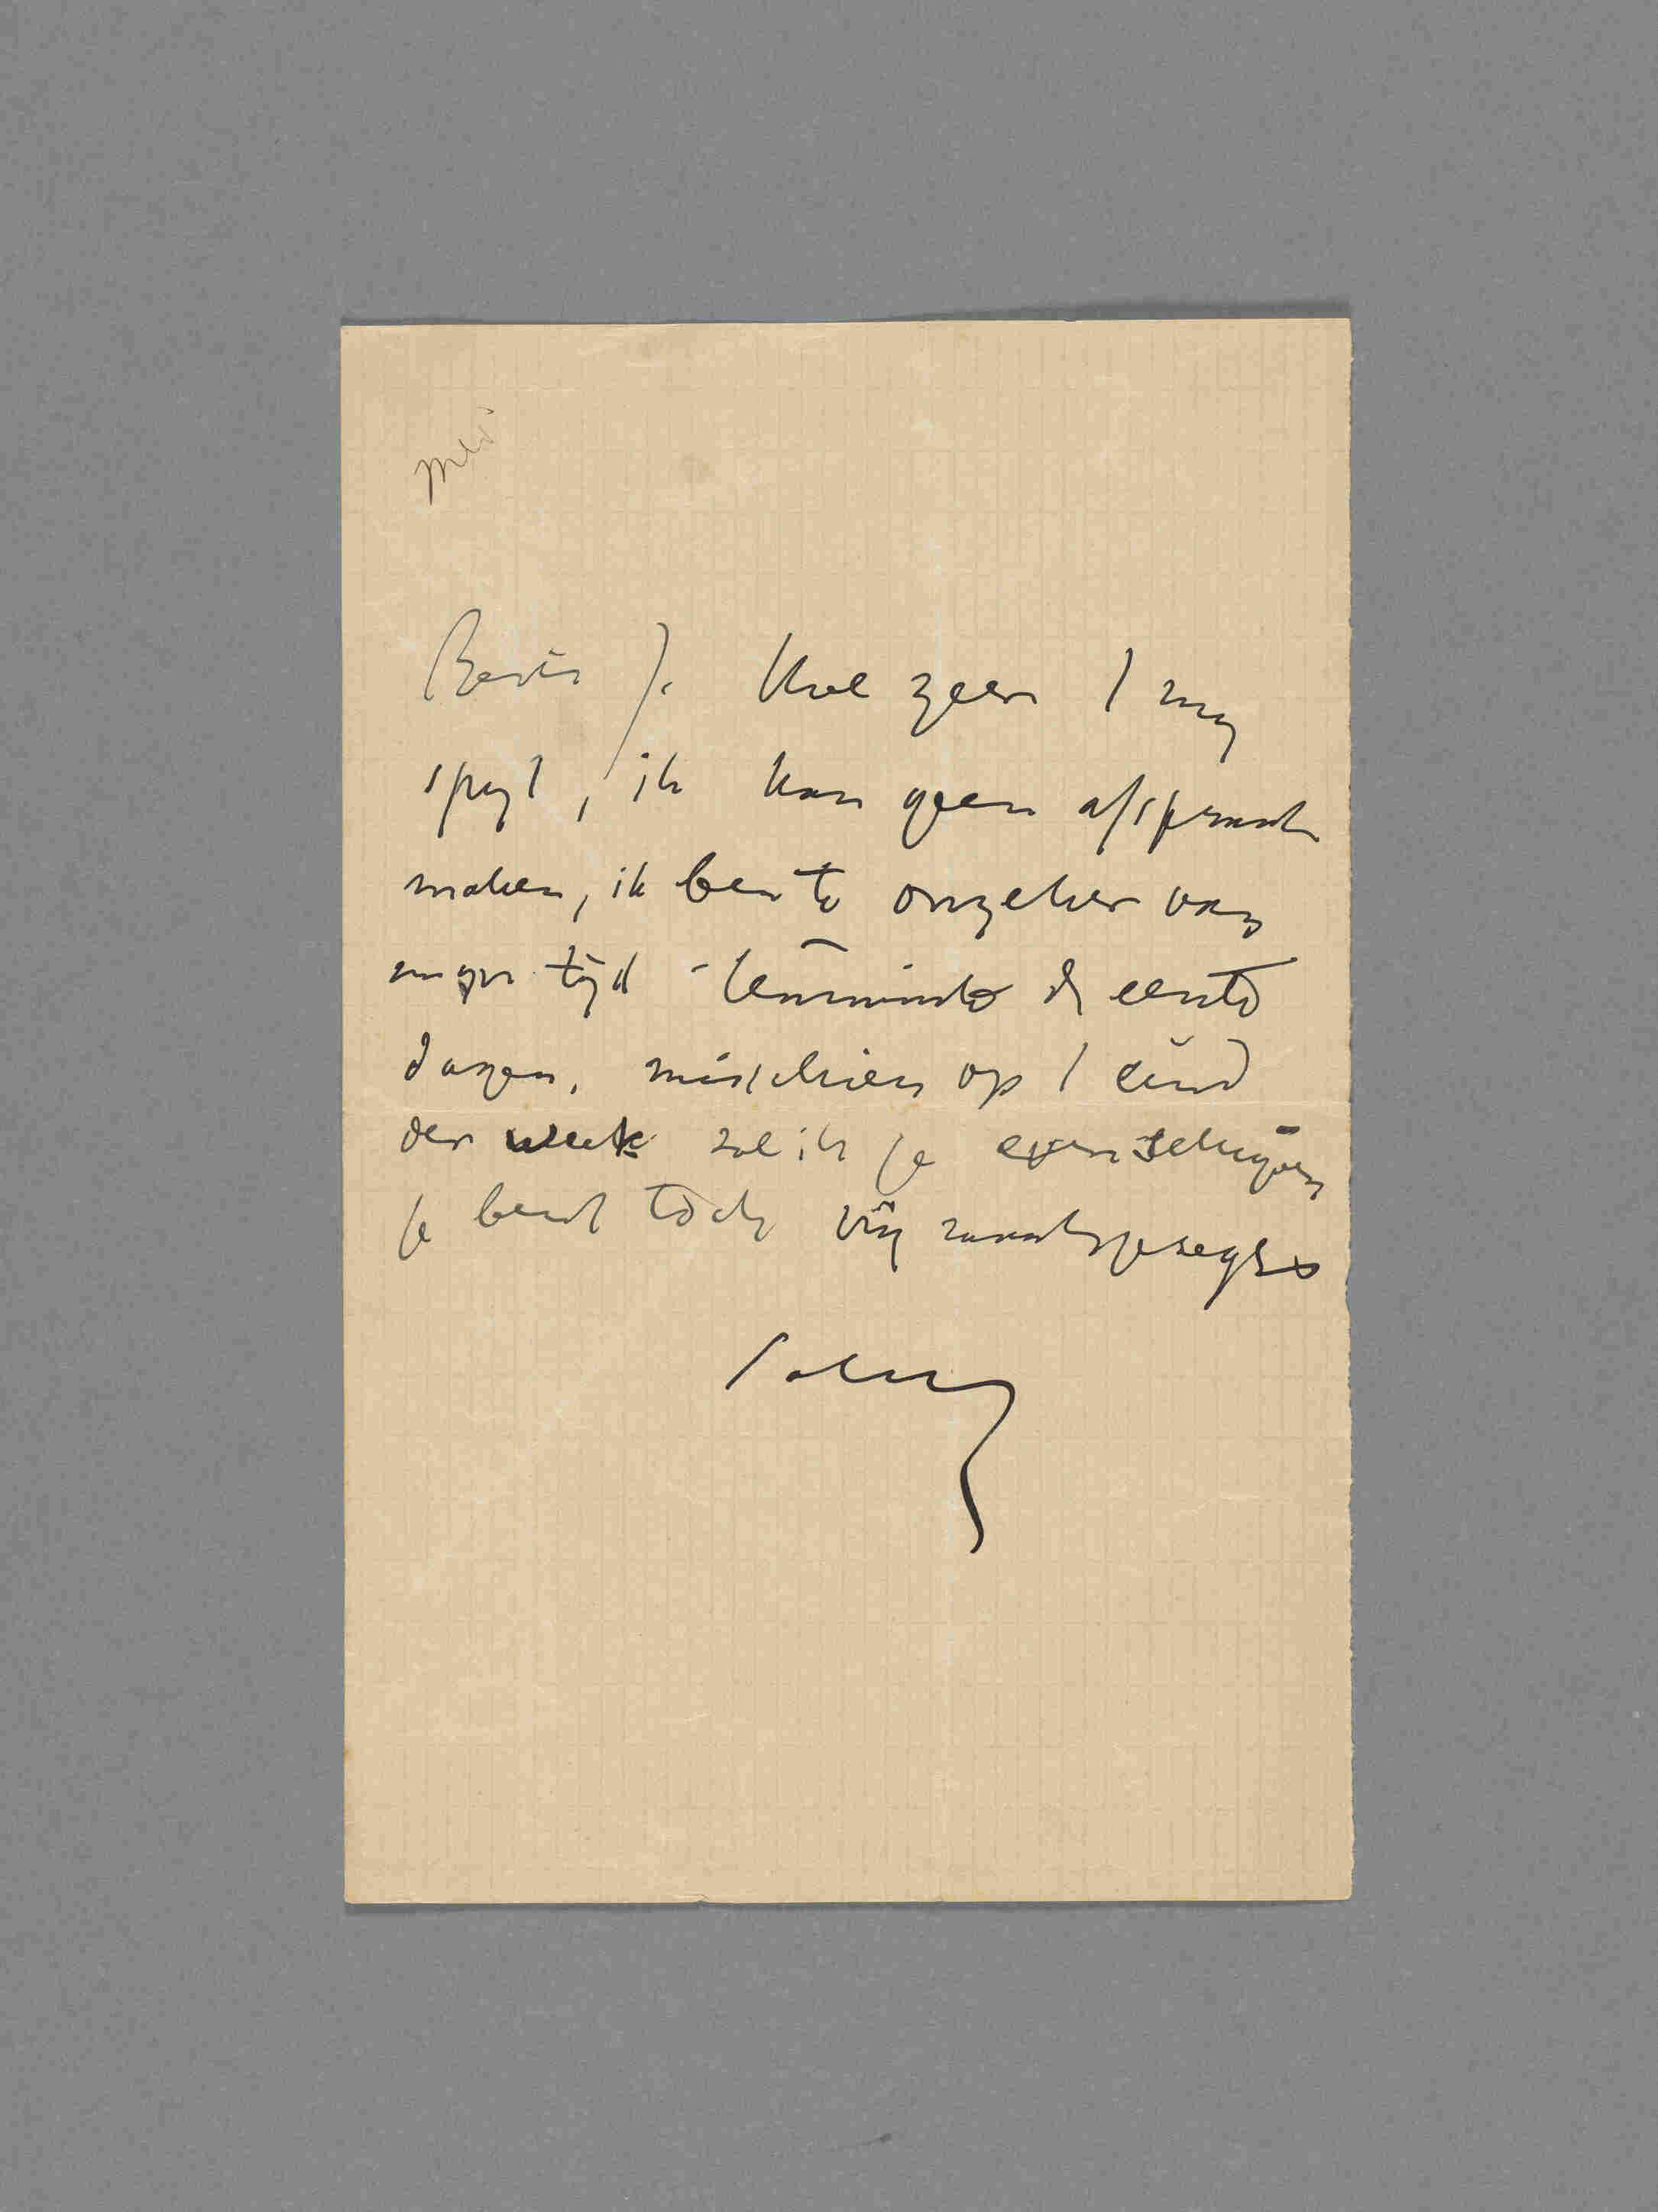 Beste J. Hoe zeer 't my
spyt, ik kan geen afspraak
maken, ik ben te onzeker van
myn tijd - tenminste de eerste
dagen, misschien op 't eind
der week zal ik je even schrijven
je bent toch vrij